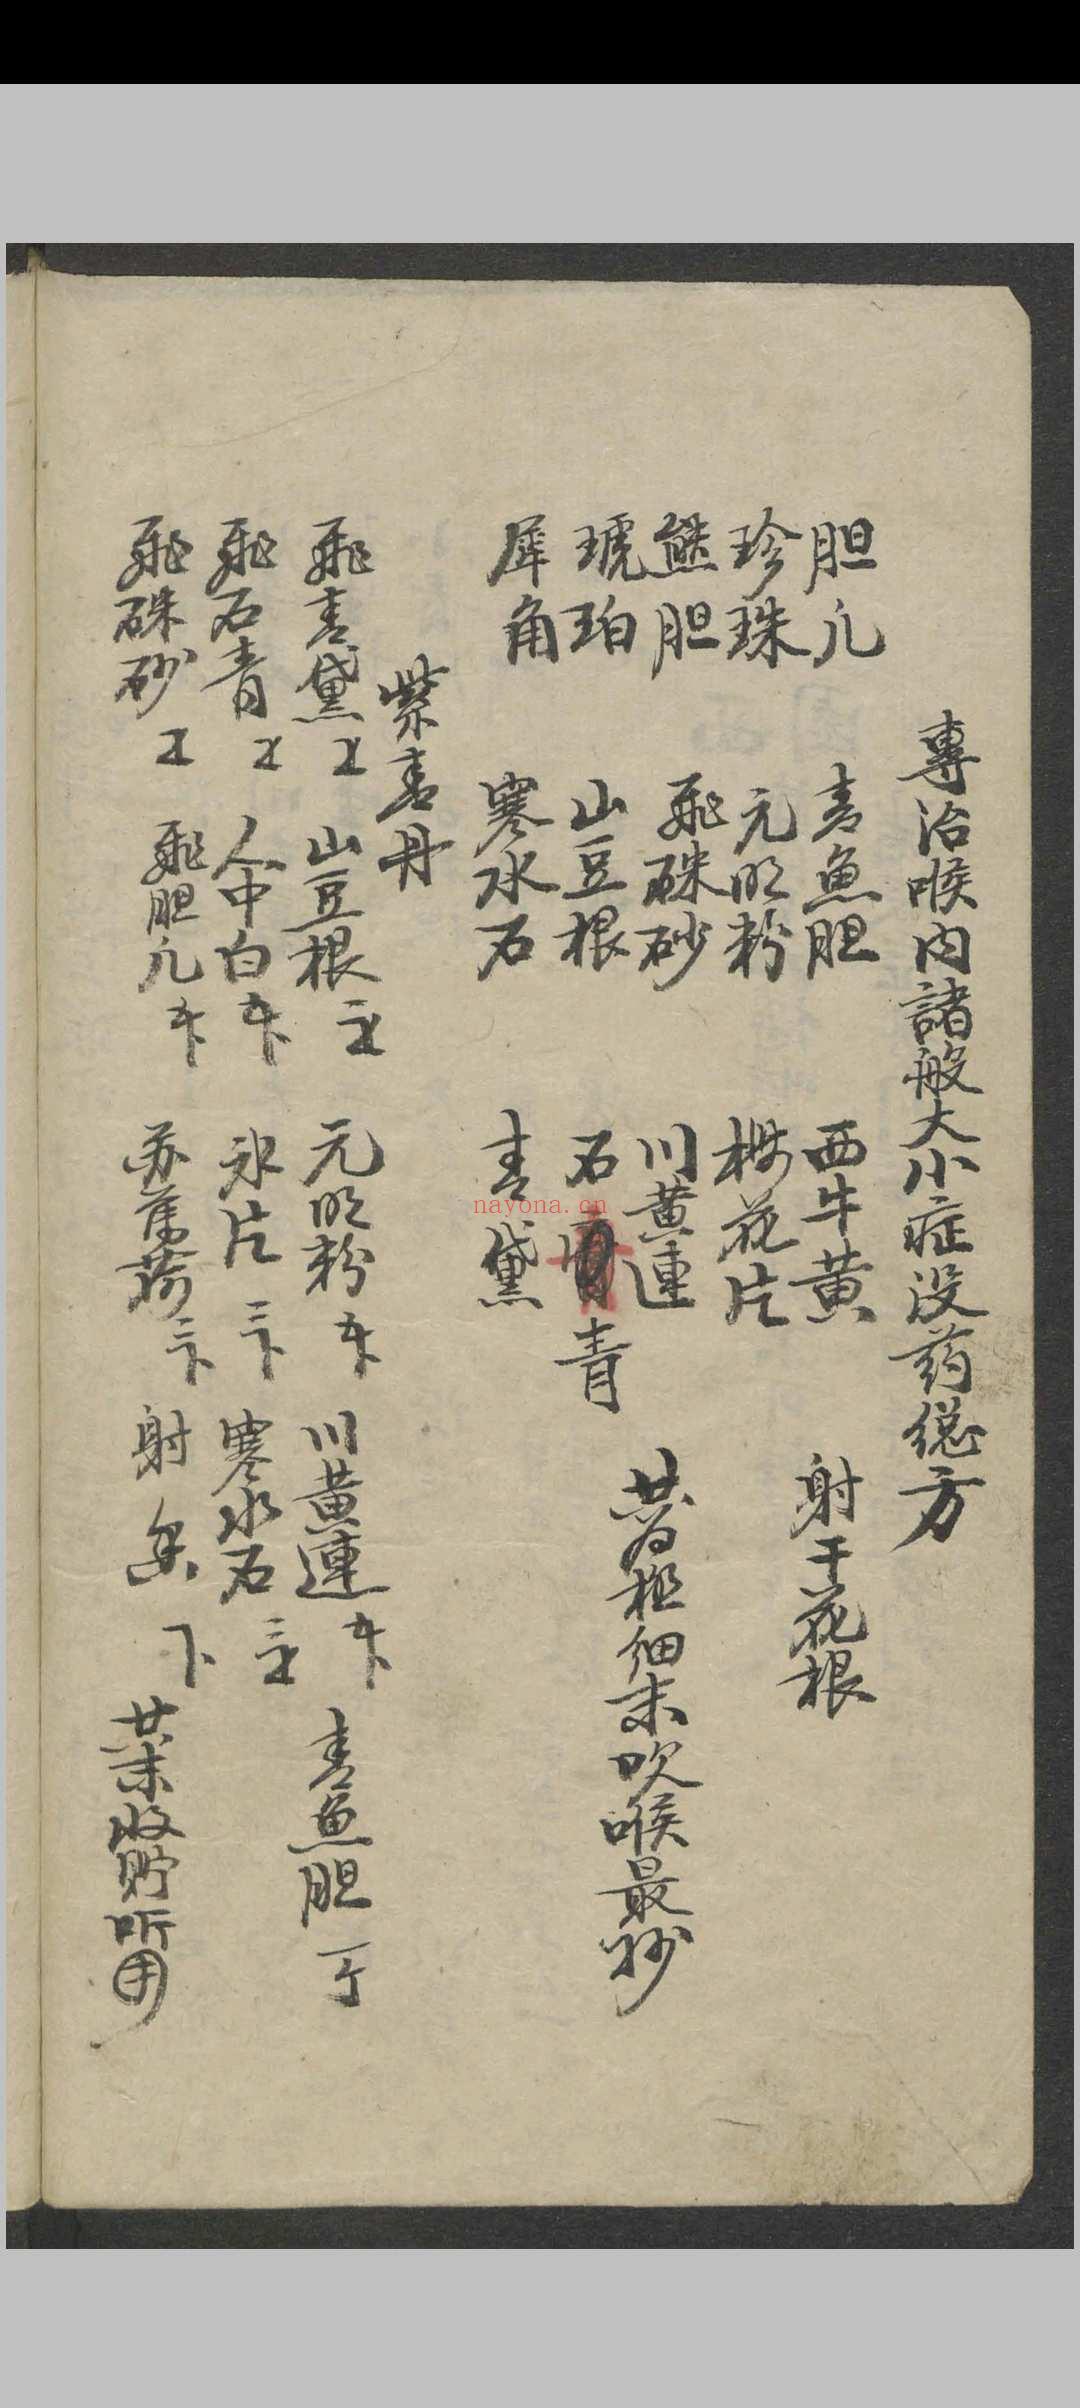 專治喉内諸般大小症没药總方
胆凡 青魚胆 西牛黄 射干花根
珍珠 元明粉 梅花片
熊胆 飛硃砂 川黄連 共為極細末吹喉最妙
琥珀 山豆根 石青
犀角 寒水石 青黛
紫雪丹
飛青黛 山豆根 元明粉 川黄連 青魚胆
飛石青 人中白 氷片 寒水石
飛硃砂 飛胆凡 苏薄荷 射香 共末收貯听用
nayona.cn